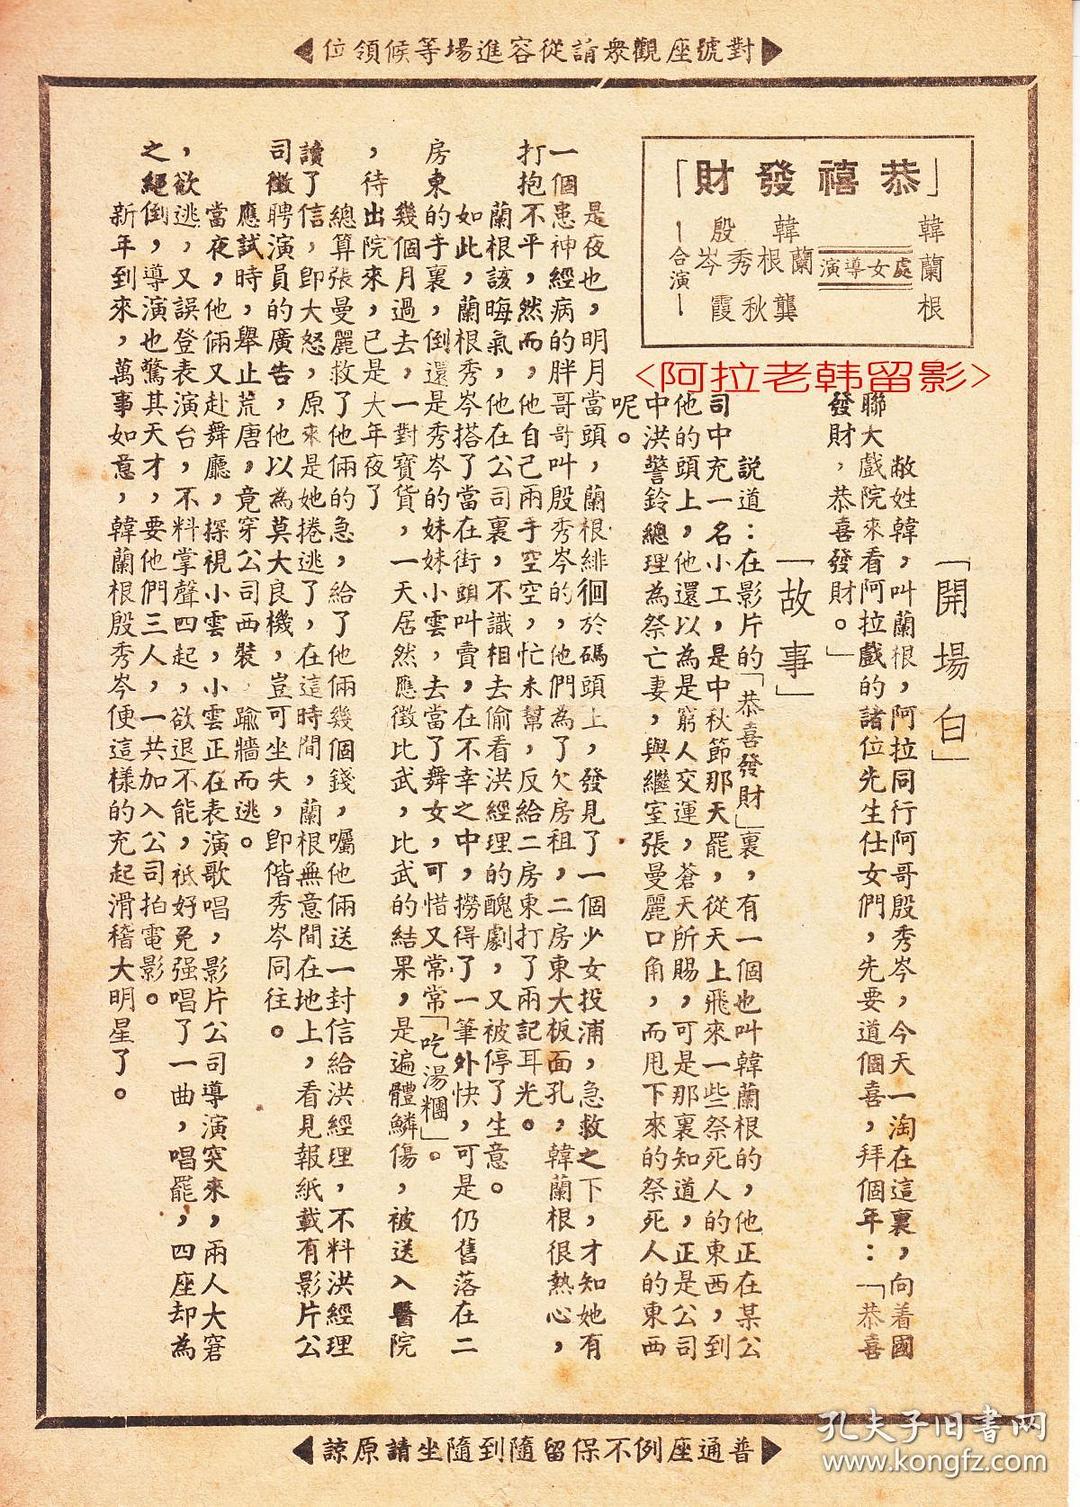 對號座觀衆請從容進場等候領位
「恭禧發財」
韓蘭根
處女導演
韓蘭根
殷秀岑
龔秋霞
—合演—
<阿拉老韩留影>
「開場白」
敝姓韓，叫蘭根，阿拉同行阿哥殷秀岑，今天一淘在這裏，向着國
聯大戲院來看阿拉戲的諸位先生仕女們，先要道個喜，拜個年：「恭喜
發財，恭喜發財。」
「故事」
說道：在影片的「恭喜發財」裏，有一個也叫韓蘭根的，他正在某公
司中充一名小工，是中秋節那天罷，從天上飛來一些祭死人的東西，到
他的頭上，他還以為是窮人交運，蒼天所賜，可是那裏知道，正是公司
中洪警鈴總理為祭亡妻，與繼室張曼麗口角，而甩下來的祭死人的東西
呢。
是夜也，明月當頭，蘭根緋徊於碼頭上，發見了一個少女投浦，急救之下，才知她有
一個患神經病的胖哥哥叫殷秀岑的，他們為了欠房租，二房東大板面孔，韓蘭根很熱心，
打抱不平，然而，他自己兩手空空，忙未幫，反給二房東打了兩記耳光。
蘭根該晦氣，他在公司裏，不識相去偷看洪經理的醜劇，又被停了生意。
如此，蘭根秀岑搭了當在街頭叫賣，在不幸之中，撈得了一筆外快，可是仍舊落在二
房東的手裏，倒還是秀岑的妹妹小雲，去當了舞女，可惜又常常「吃湯糰」。
幾個月過去，一對寶貨，一天居然應徵比武，比武的結果，是遍體鱗傷，被送入醫院
，待出院來，已是大年夜了
總算張曼麗救了他倆的急，給了他倆幾個錢，囑他倆送一封信給洪經理，不料洪經理
讀了信，卽大怒，原來是她捲逃了，在這時間，蘭根無意間在地上，看見報紙載有影片公
司徵聘演員的廣告，他以為莫大良機，豈可坐失，卽偕秀岑同往。
應試時，舉止荒唐，竟穿公司西裝　踰牆而逃。
當夜，他倆又赴舞廳，探視小雲，小雲正在表演歌唱，影片公司導演突來，兩人大窘
，欲逃，又誤登表演台，不料掌聲四起，欲退不能，祗好免强唱了一曲，唱罷，四座却為
之絕倒，導演也驚其天才，要他們三人，一共加入公司拍電影。
新年到來，萬事如意，韓蘭根殷秀岑便這樣的充起滑稽大明星了。
普通座例不保留隨到隨坐請原諒
孔夫子旧书网
www.kongfz.com